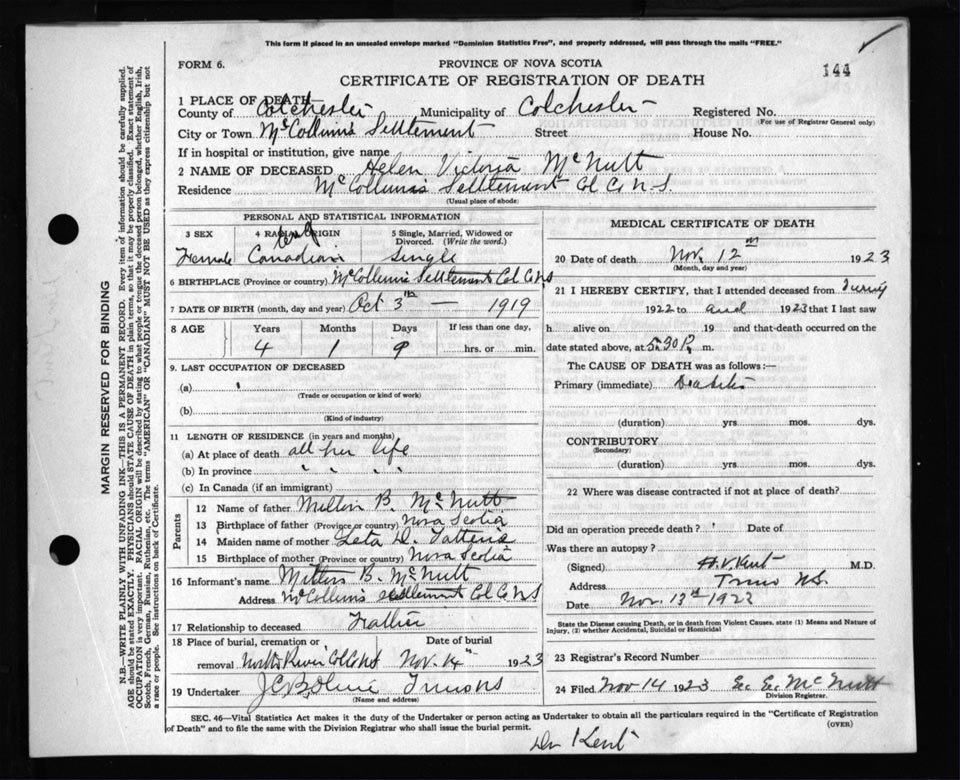 This form if placed in an unsealed envelope marked "Dominion Statistics Free", and properly addressed, will pass through the mails "FREE."
FORM 6.
PROVINCE OF NOVA SCOTIA
144
CERTIFICATE OF REGISTRATION OF DEATH
1 PLACE OF DEATH
County of Colchester Municipality of Colchester Registered No.
(For use of Registrar General only)
City or Town McCollums Settlement Street House No.
If in hospital or institution, give name
2 NAME OF DECEASED Helen Victoria McNutt
Residence McCollums Settlement Col Co N.S.
(Usual place of abode)
PERSONAL AND STATISTICAL INFORMATION
3 SEX 4 RACIAL ORIGIN 5 Single, Married, Widowed or Divorced. (Write the word.)
Female Canadian Single
6 BIRTHPLACE (Province or country) McCollums Settlement Col Co NS
7 DATE OF BIRTH (month, day and year) Oct 3th — 1919
8 AGE Years Months Days If less than one day,
4 1 9 hrs. or min.
9. LAST OCCUPATION OF DECEASED
(a)
(Trade or occupation or kind of work)
(b)
(Kind of industry)
11 LENGTH OF RESIDENCE (in years and months)
(a) At place of death all her life
(b) In province " " "
(c) In Canada (if an immigrant)
Parents
12 Name of father B. McNutt
13 Birthplace of father (Province or country) Nova Scotia
14 Maiden name of mother Leta D.
15 Birthplace of mother (Province or country) Nova Scotia
16 Informant's name B. McNutt
Address McCollums Settlement Col Co NS
17 Relationship to deceased Father
18 Place of burial, cremation or Date of burial
removal North River Col Co NS Nov. 14th 1923
19 Undertaker Truro NS
(Name and address)
MEDICAL CERTIFICATE OF DEATH
20 Date of death Nov. 12th 1923
(Month, day and year)
21 I HEREBY CERTIFY, that I attended deceased from During
1922 to and 1923 that I last saw
h alive on , 19 and that death occurred on the
date stated above, at 5.30 P. m.
The CAUSE OF DEATH was as follows:—
Primary (immediate)
(duration) yrs. mos. dys.
CONTRIBUTORY
(Secondary)
(duration) yrs. mos. dys.
22 Where was disease contracted if not at place of death?
Did an operation precede death? Date of
Was there an autopsy?
(Signed) H.V. Kent M.D.
Address Truro N.S.
Date Nov. 13th 1923
State the Disease causing Death, or in death from Violent Causes, state (1) Means and Nature of Injury, (2) whether Accidental, Suicidal or Homicidal
23 Registrar's Record Number
24 Filed Nov 14 1923 McNutt
Division Registrar.
SEC. 46—Vital Statistics Act makes it the duty of the Undertaker or person acting as Undertaker to obtain all the particulars required in the "Certificate of Registration
of Death" and to file the same with the Division Registrar who shall issue the burial permit.
(OVER)
Dr Kent
MARGIN RESERVED FOR BINDING
N.B.—WRITE PLAINLY WITH UNFADING INK—THIS IS A PERMANENT RECORD. Every item of information should be carefully supplied.
AGE should be stated EXACTLY. PHYSICIANS should STATE CAUSE OF DEATH in plain terms, so that it may be properly classified. Exact statement of
OCCUPATION is very important. RACIAL ORIGIN will be described by stating to what people or tongue the deceased person belonged, whether English, Irish,
Scotch, French, German, Russian, Ruthenian, etc. The terms "AMERICAN" OR "CANADIAN" MUST NOT BE USED as they express citizenship but not
a race or people. See instructions on back of Certificate.